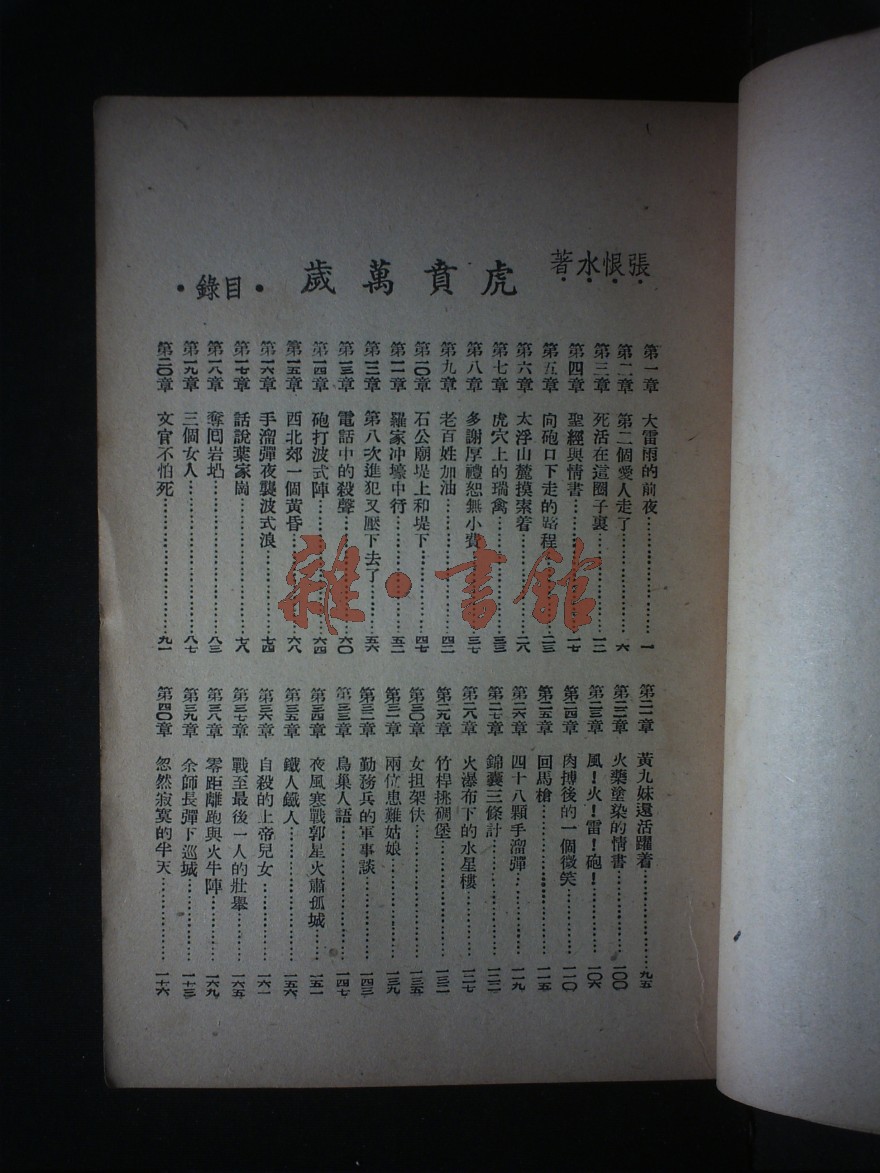 張恨水著
虎賁萬歲
·目錄·
第一章 大雷雨的前夜 一
第二章 第二個愛人走了 六
第三章 死活在這圈子裏 一二
第四章 聖經與情書 一七
第五章 向砲口下走的路程 二三
第六章 太浮山麓摸索着 二八
第七章 虎穴上的瑞禽 三三
第八章 多謝厚禮恕無小費 三七
第九章 老百姓加油 四二
第一〇章 石公廟堤上和堤下 四七
第一一章 羅家冲壕中行 五二
第一二章 第八次進犯又壓下去了 五六
第一三章 電話中的殺聲 六〇
第一四章 砲打波式陣 六四
第一五章 西北郊一個黃昏 六八
第一六章 手溜彈夜襲波式浪 七四
第一七章 話說葉家崗 七八
第一八章 奪囘岩坫 八三
第一九章 三個女人 八七
第二〇章 文官不怕死 九一
第二一章 黃九妹還活躍着 九五
第二二章 火藥塗染的情書 一〇〇
第二三章 風!火!雷!砲! 一〇六
第二四章 肉搏後的一個微笑 一一〇
第二五章 回馬槍 一一五
第二六章 四十八顆手溜彈 一一九
第二七章 錦囊三條計 一二二
第二八章 火瀑布下的水星樓 一二七
第二九章 竹桿挑碉堡 一三一
第三〇章 女担架伕 一三五
第三一章 兩位患難姑娘 一三九
第三二章 勤務兵的軍事談 一四三
第三三章 鳥巢人語 一四七
第三四章 夜風寒戰郭星火肅孤城 一五一
第三五章 鐵人鐵人 一五六
第三六章 自殺的上帝兒女 一六一
第三七章 戰至最後一人的壯舉 一六五
第三八章 零距離跑與火牛陣 一六九
第三九章 余師長彈下巡城 一七三
第四〇章 忽然寂寞的半天 一七六
雜·書館